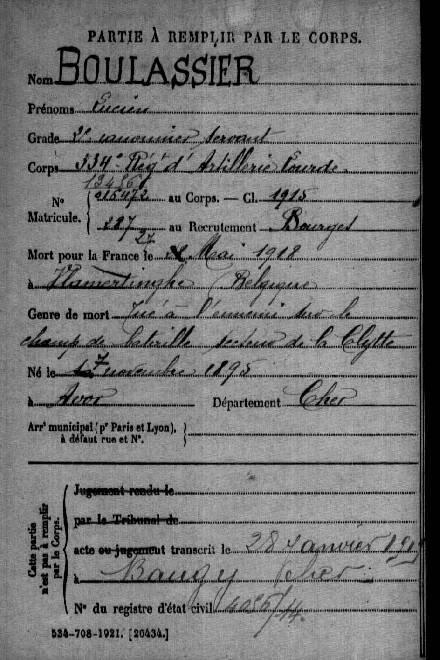 PARTIE À REMPLIR PAR LE CORPS.
Nom BOULASSIER
Prénoms Lucien
Grade 2e canonnier servant
Corps 334e Rég' d'Artillerie Lourde
N° Matricule. au Corps. — Cl. 1915
227 au Recrutement Bourges
Mort pour la France le 27 Mai 1918
à Vlamertinghe Belgique
Genre de mort Tué à l'ennemi sur le
champ de bataille secteur de la Clytte
Né le 7 novembre 1895
à Avor Département Cher
Arrt municipal (pr Paris et Lyon), à défaut rue et N°.
Cette partie n'est pas à remplir par le Corps.
Jugement rendu le
par le Tribunal de
acte ou jugement transcrit le 28 Janvier
à Baugy Cher
N° du registre d'état civil
534-708-1921. [26434.]